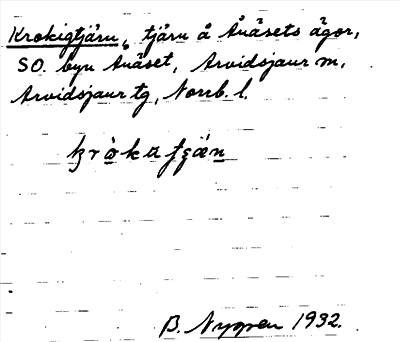 Krokigtjärn, tjärn å Aväsets ägor,
SO. byn Aväset, Arvidsjaur sn,
Arvidsjaur tg, Norrb. l.
B. Nygren 1932.